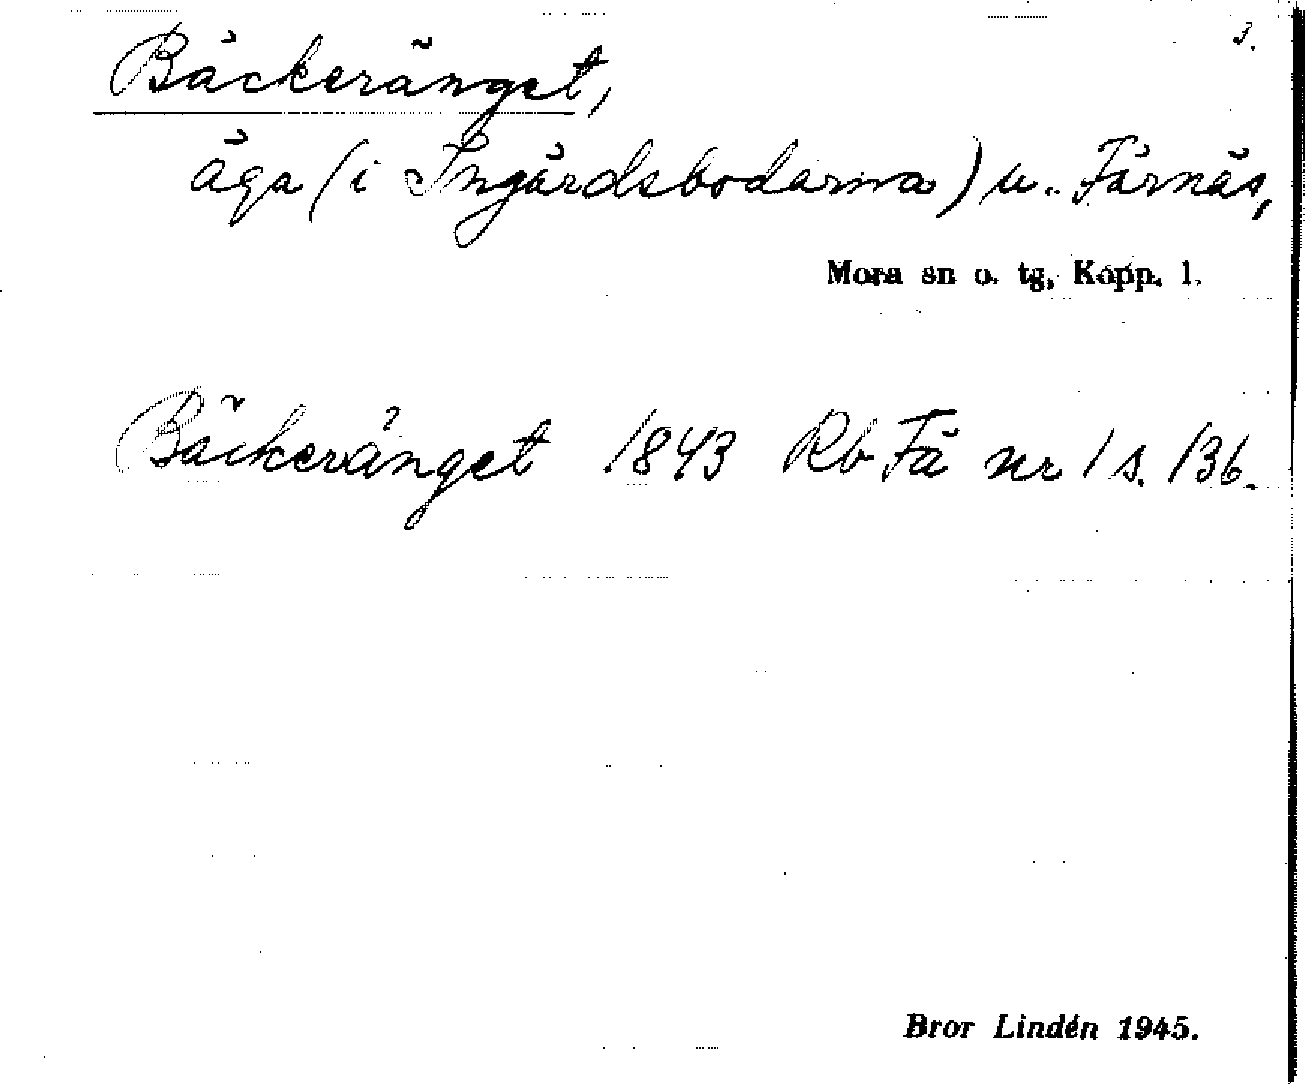 Bäckeränget,
äga (i Ingärdsbodarna) u. Färnäs,
Mora sn o. tg, Kopp. l.
Bäckeränget 1843 Rb Fä nr 1 s. 136.
Bror Lindén 1945.